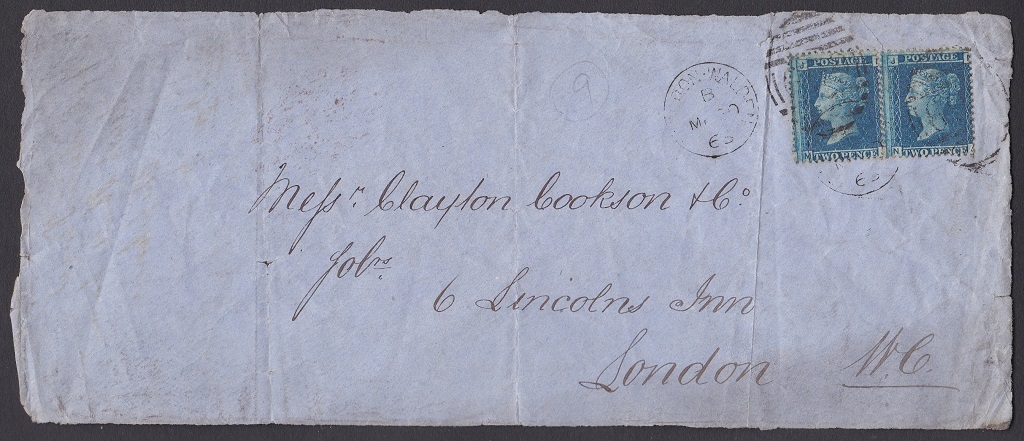 9
RON-WALDEN
B
65
POSTAGE
TWO PENCE
POSTAGE
TWO PENCE
65
Messrs. Clayton Cookson & Co.
Solrs.
6 Lincolns Inn
London W.C.